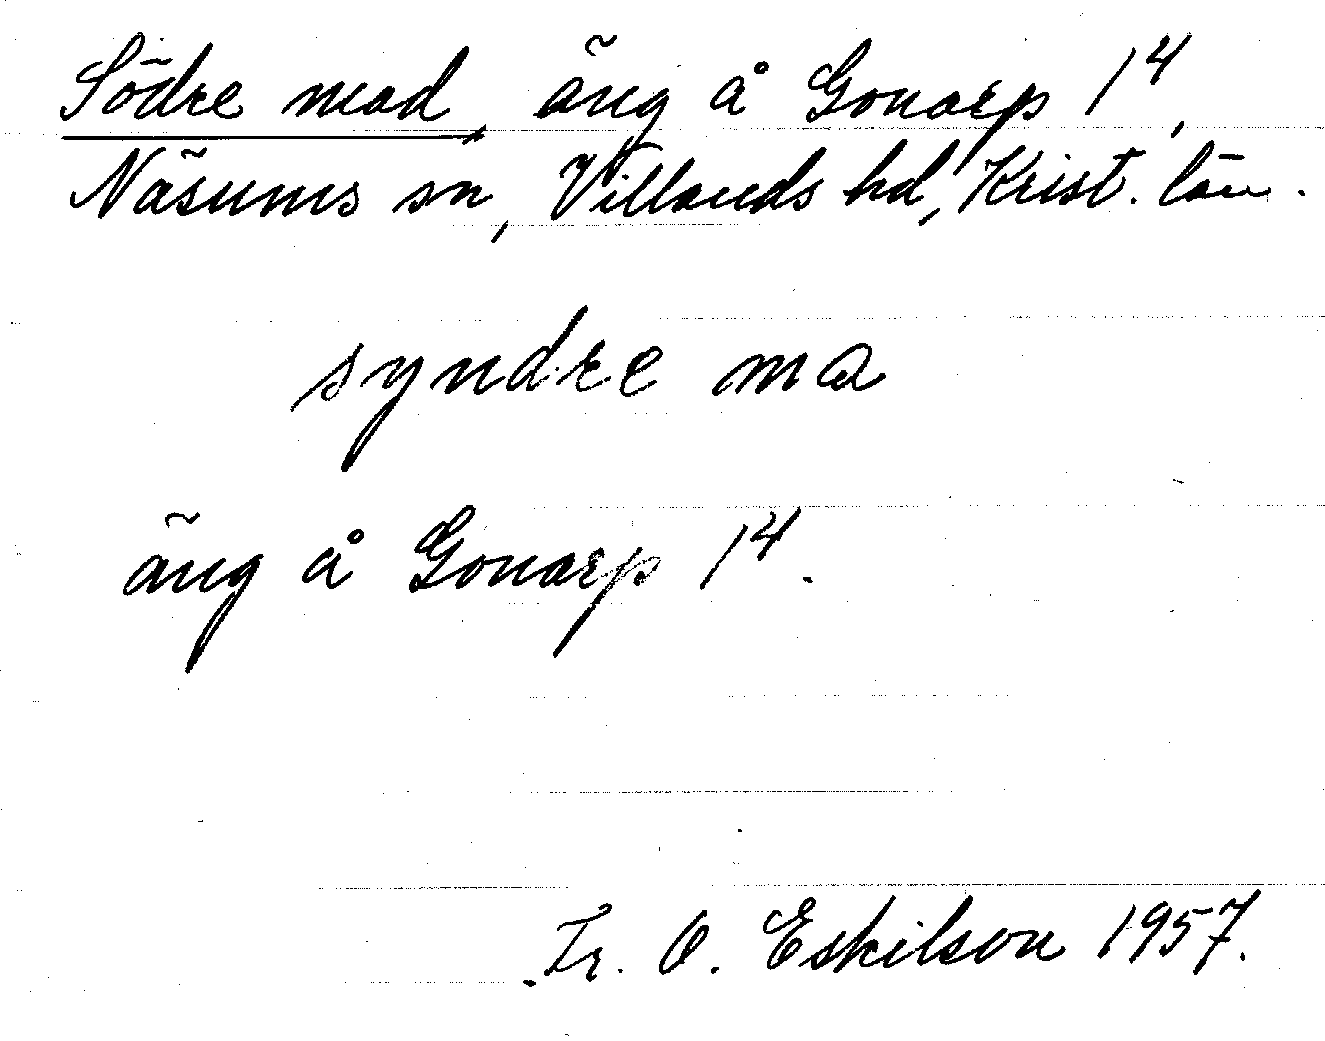 Södre mad, äng å Gonarp 1⁴,
Näsums sn, Villands hd, Krist. län.
syndre ma
äng å Gonarp 1⁴.
Fr. O. Eskilson 1957.